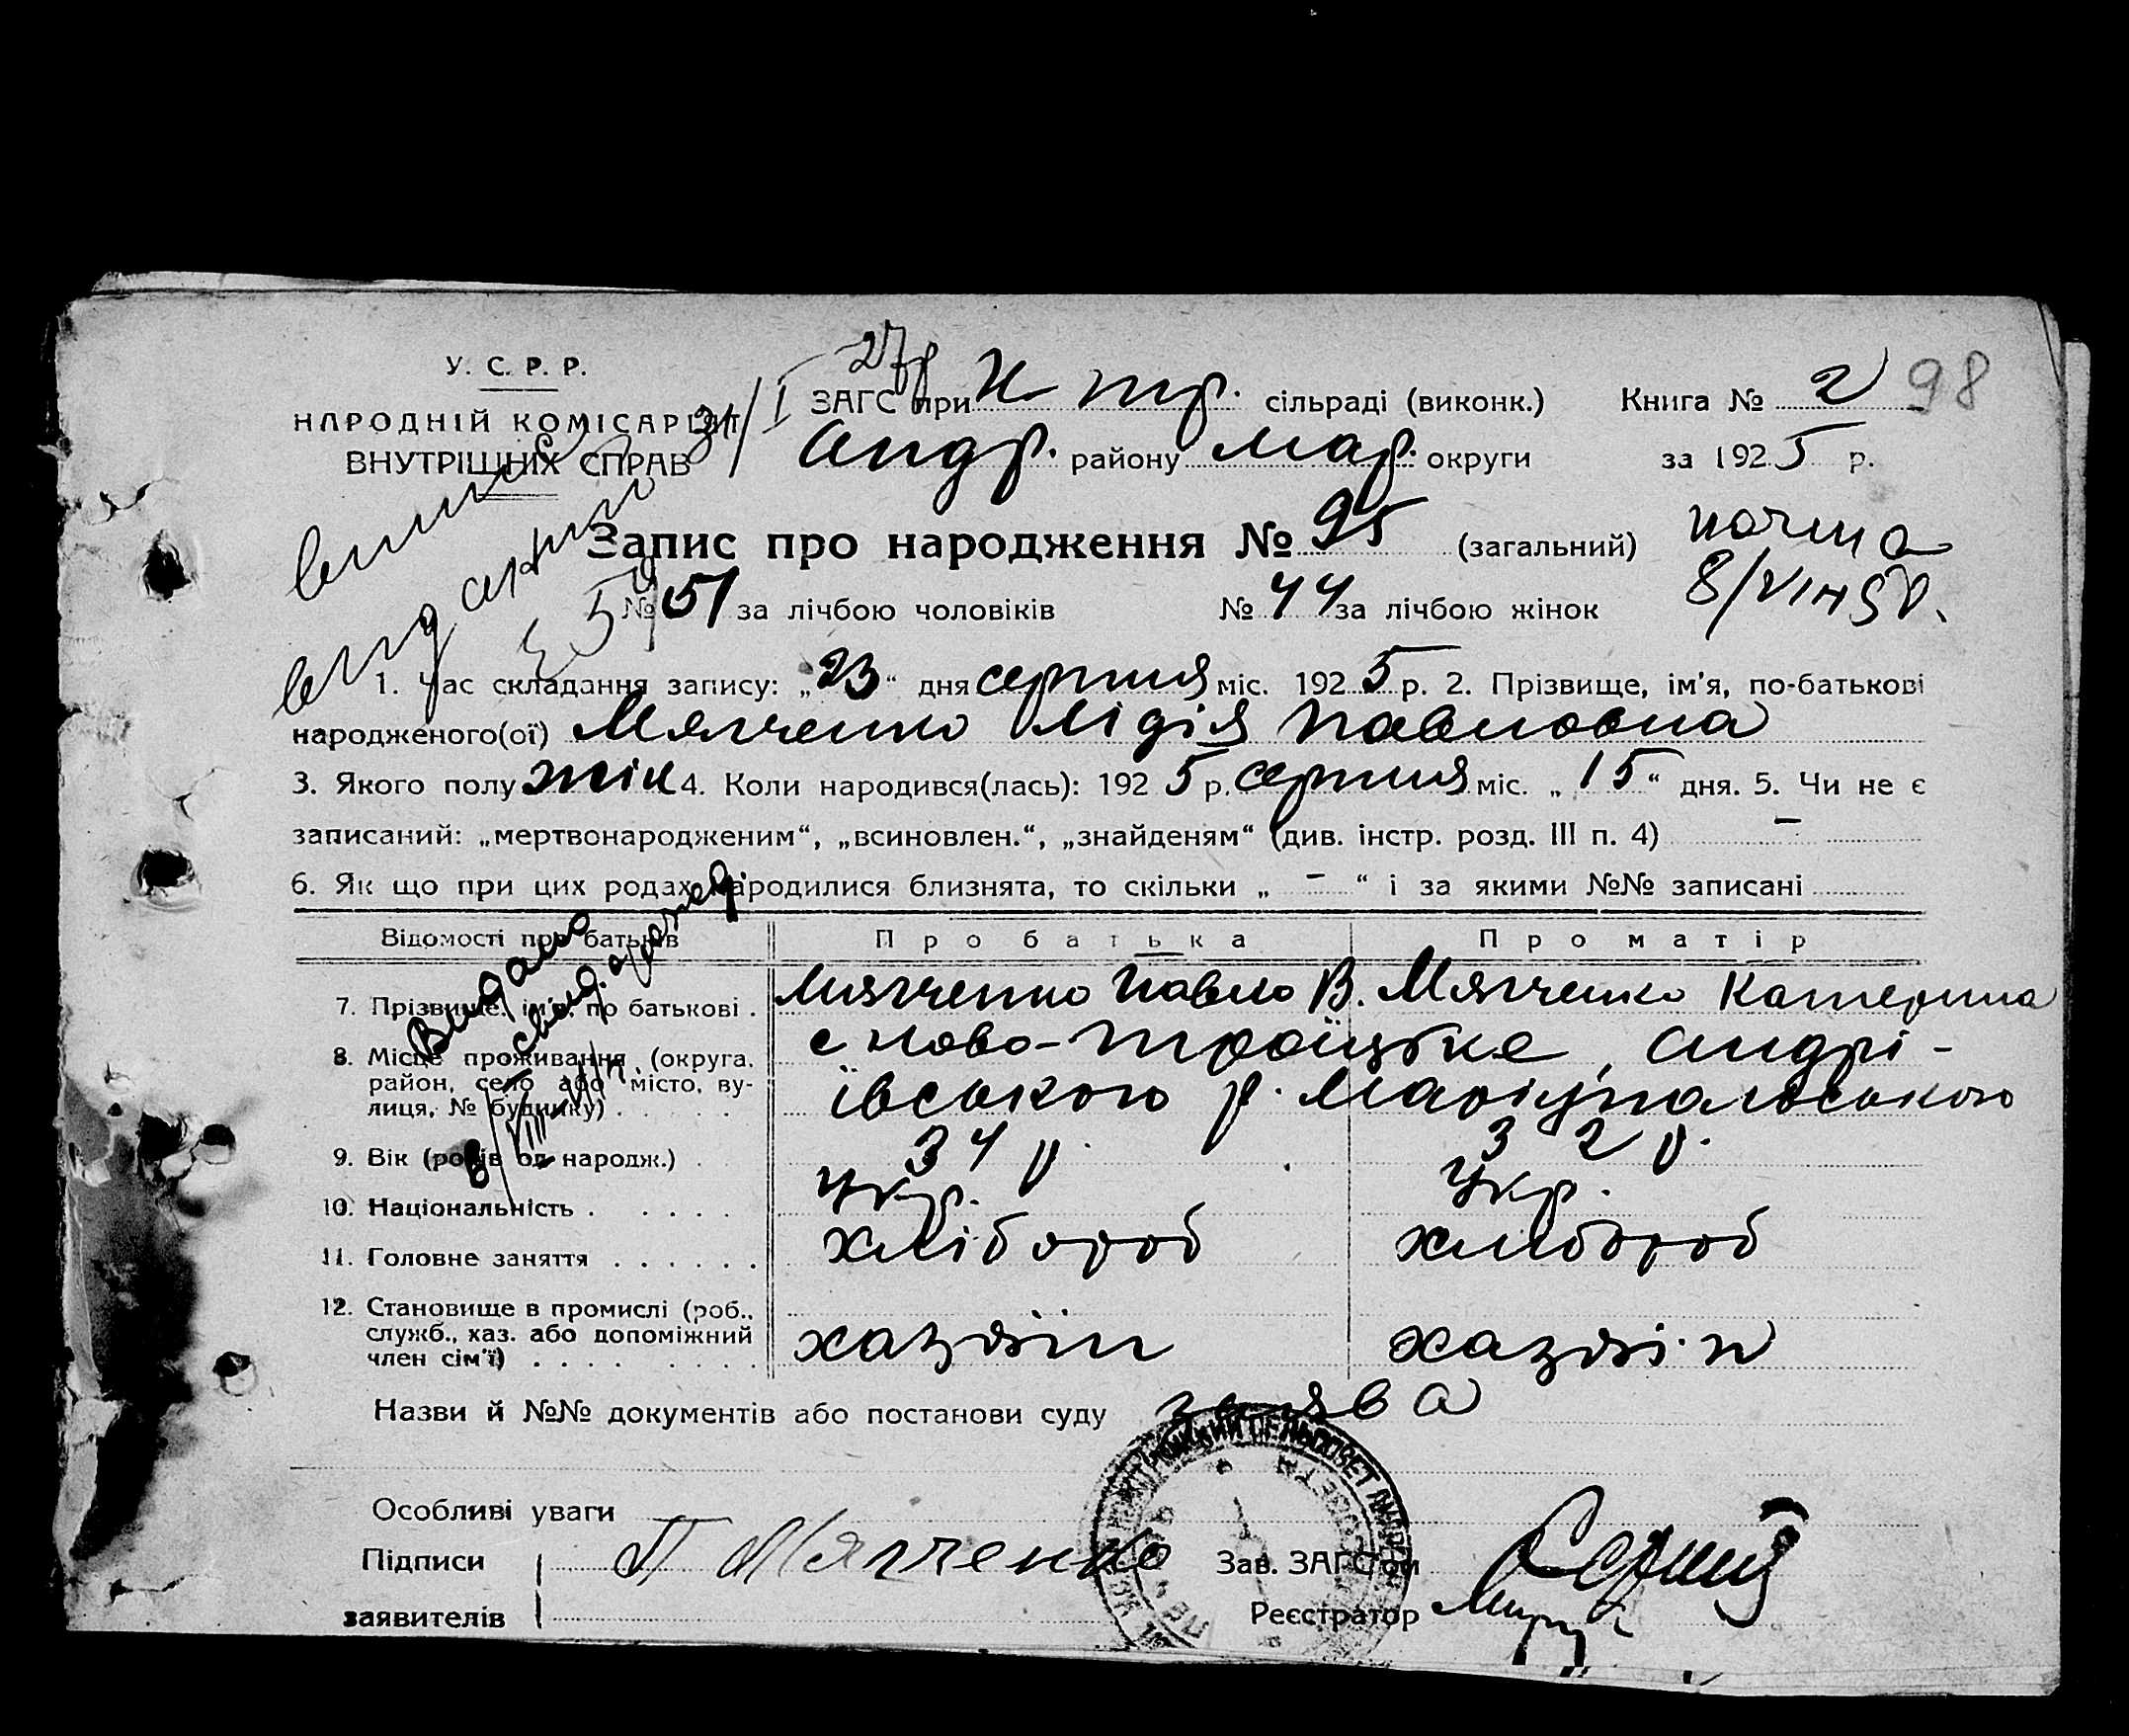 27
У. С. Р. Р.
НАРОДНІЙ КОМІСАРІЯТ
ВНУТРІШНІХ СПРАВ
ЗАГС при Н тр. сільраді (виконк.) Книга № 2 98
Андр. району Мар. округи за 1925 р.
Запис про народження № 95 (загальний) почта
№ 51 за лічбою чоловіків № 44 за лічбою жінок
1. Час складання запису: „23“ дня серпня міс. 1925 р. 2. Прізвище, ім'я, по-батькові
народженого(ої) Мягченко Лідія Павловна
3. Якого полу жін 4. Коли народився(лась): 1925 р. серпня міс. „15“ дня. 5. Чи не є
записаний: „мертвонародженим“, „всиновлен.“, „знайденям“ (див. інстр. розд. III п. 4) –
6. Як що при цих родах народилися близнята, то скільки „ – “ і за якими №№ записані
Відомості про батьків Про батька Про матір
7. Прізвище, ім'я, по батькові . Мягченко Павло В. Мягченко Катерина
8. Місце проживання (округа, район, село або місто, вулиця, № будинку) с Ново-Троїцьке, Андрі-
ївського р. Маріупальського
9. Вік (років од народж.) . 34 р. 32 р.
10. Національність . укр. укр.
11. Головне заняття . . . . . . хлібороб хлібороб
12. Становище в промислі (роб., служб., хаз. або допоміжний член сім'ї) хазяін хазяін
Видано свид.
Назви й №№ документів або постанови суду заява
Особливі уваги
Підписи П Мягченко Зав. ЗАГС'ом
заявителів Реєстратор